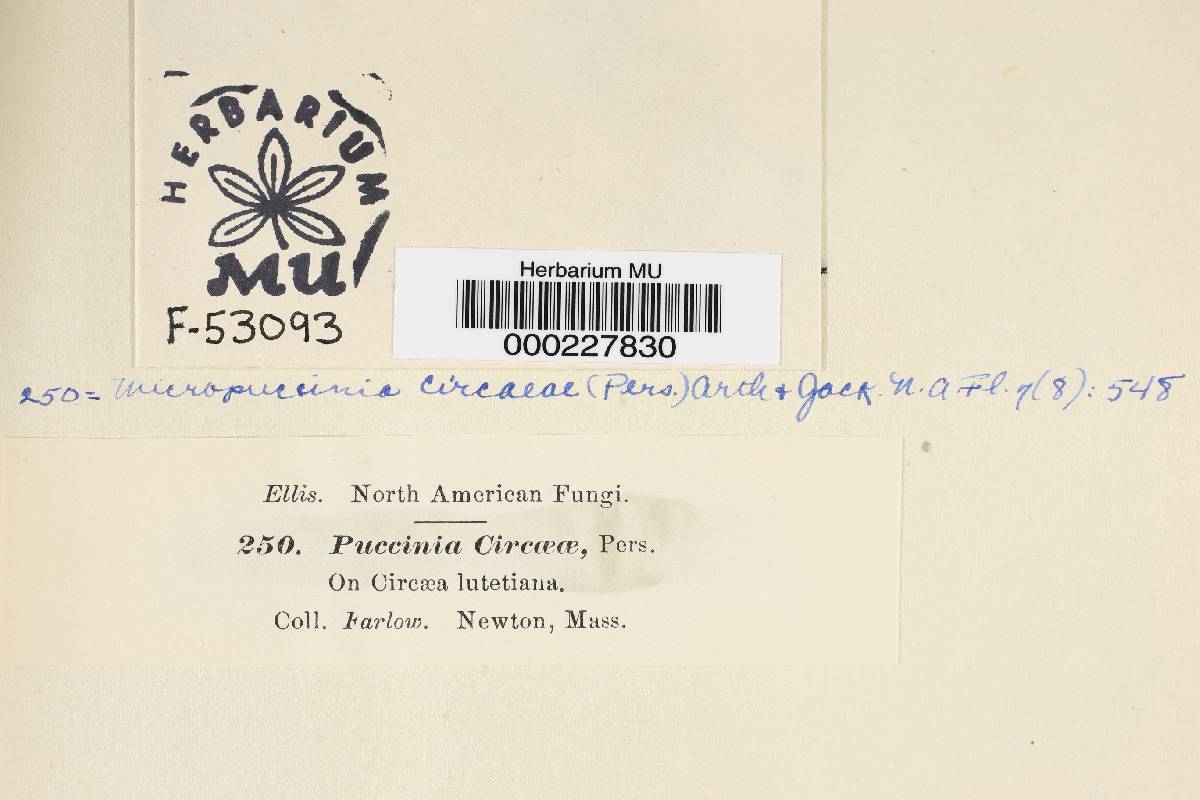 HERBARIUM
MU
F-53093
Herbarium MU
000227830
250 = Micropuccinia circaeae (Pers.) Arth & Jack. N. A. Fl. 7(8): 548
Ellis. North American Fungi.
250. Puccinia Circææ, Pers.
On Circæa lutetiana.
Coll. Farlow. Newton, Mass.